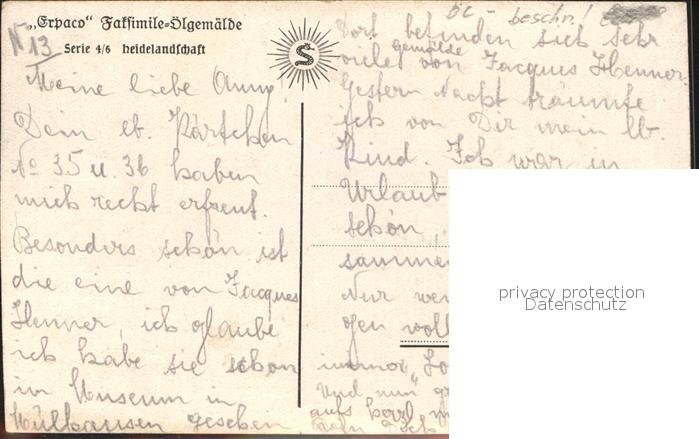 „Erpaco" Faksimile-Ölgemälde
Serie 4/6 heidelandschaft
No 13
S
Meine liebe Anny!
Dein lb. Kärtchen
No 35 u. 36 haben
mich recht erfreut.
Besonders schön ist
die eine von Jacques
Henner, ich glaube
ich habe sie schon
im Museum in
Mülhausen gesehen
beschr.!
Dort befinden sich sehr
viele gemälde von Jacques Henner.
Gestern Nacht träumte
ich von Dir mein lb.
Kind. Ich war in
Urlaub
schön,
sammen
Nur
immer
Und nun
aufs herzl
Dein
privacy protection
Datenschutz